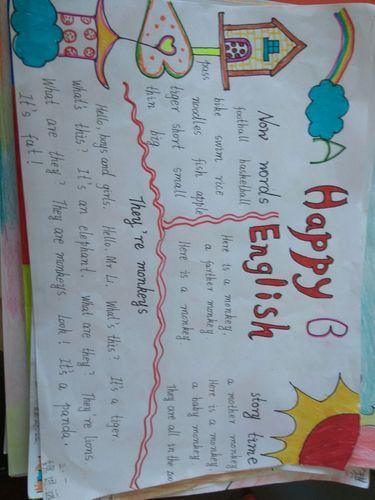 A Happy B
English
Now words
football basketball
bike swim rice
pass noodles fish apple
tiger short small
thin big
story time
Here is a monkey. a mother monkey
a farther monkey Here is a monkey
Here is a monkey a baby monkey
They are all in the
They're monkeys
Hello, boys and girls. Hello, Mr Li. What's this? It's a tiger.
what's this? It's an elephant. what are they? They're lions.
What are they? They are monkeys Look! It's a panda.
It's fat!